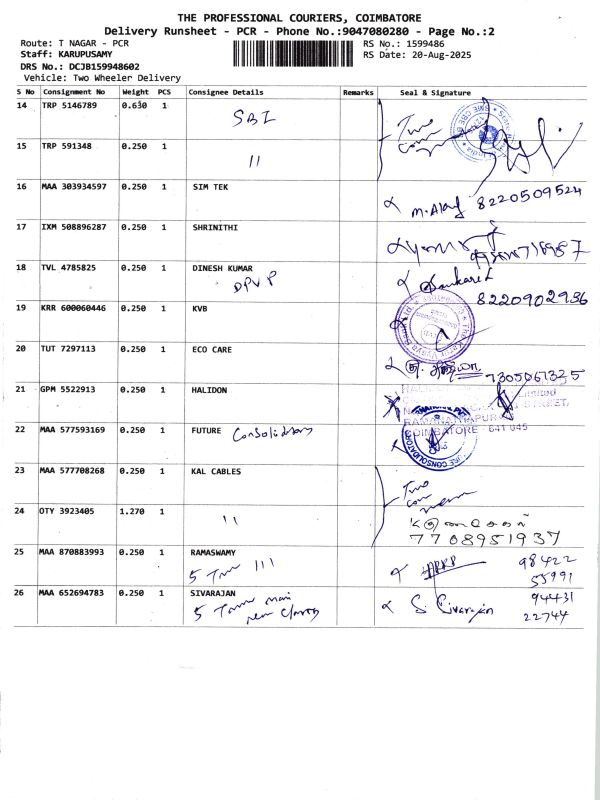 THE PROFESSIONAL COURIERS, COIMBATORE
Delivery Runsheet - PCR - Phone No.:9047080280 - Page No.:2
Route: T NAGAR - PCR RS No.: 1599486
Staff: KARUPUSAMY RS Date: 20-Aug-2025
DRS No.: DCJB159948602
Vehicle: Two Wheeler Delivery
S No Consignment No Weight PCS Consignee Details Remarks Seal & Signature
14 TRP 5146789 0.630 1
SBI
15 TRP 591348 0.250 1
11
16 MAA 303934597 0.250 1 SIM TEK
8220509524
17 IXM 508896287 0.250 1 SHRINITHI
18 TVL 4785825 0.250 1 DINESH KUMAR
DPVP
8220902936
19 KRR 600060446 0.250 1 KVB
20 TUT 7297113 0.250 1 ECO CARE
7305067325
21 GPM 5522913 0.250 1 HALIDON
STREET,
COIMBATORE - 641 045
22 MAA 577593169 0.250 1 FUTURE
23 MAA 577708268 0.250 1 KAL CABLES
24 OTY 3923405 1.270 1
11
7708951937
25 MAA 870883993 0.250 1 RAMASWAMY
98422
55991
26 MAA 652694783 0.250 1 SIVARAJAN
S. Sivarajan
94431
22744